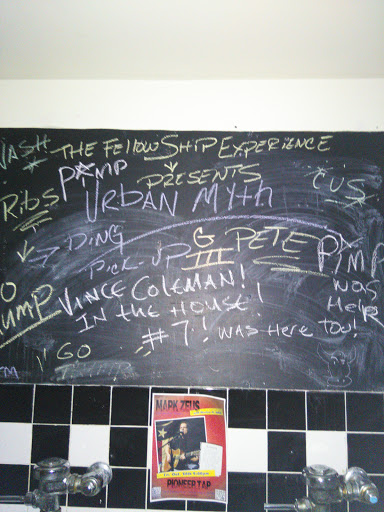 NASH THE FELLOWSHIP EXPERIENCE
PIMP PRESENTS
RIBS URBAN MYTH CUS
DING G PETE PIMP
PICK-UP III WAS
VINCE COLEMAN! HERE
IN THE HOUSE!
#7! WAS HERE TOO!
GO
MARK ZEUS
PIONEER TAP